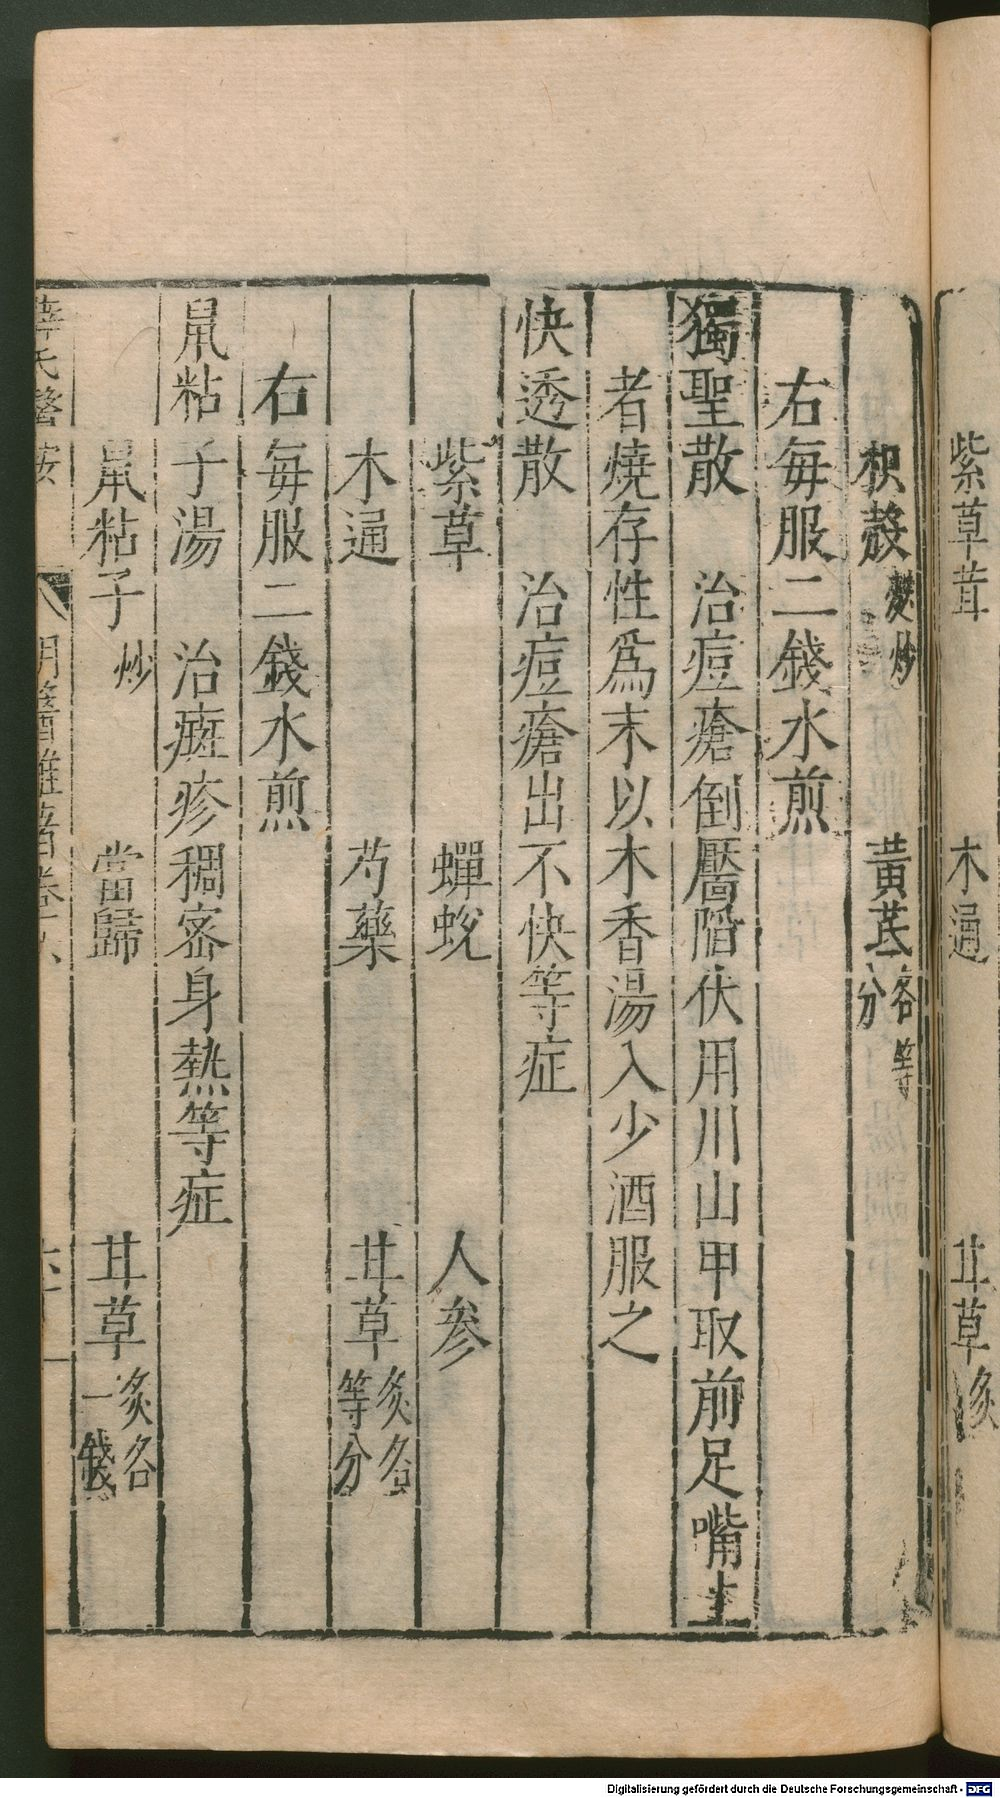 紫草茸 木通 甘草炙
枳殼麩炒 黃芪各等分
右每服二錢水煎
獨聖散 治痘瘡倒黶陷伏用川山甲取前足嘴上
者燒存性爲末以木香湯入少酒服之
快透散 治痘瘡出不快等症
紫草 蟬蛻 人參
木通 芍藥 甘草炙各等分
右每服二錢水煎
鼠粘子湯 治斑疹稠密身熱等症
鼠粘子炒 當歸 甘草炙各一錢
薛氏醫按 明醫雜著卷六
Digitalisierung gefördert durch die Deutsche Forschungsgemeinschaft - DFG